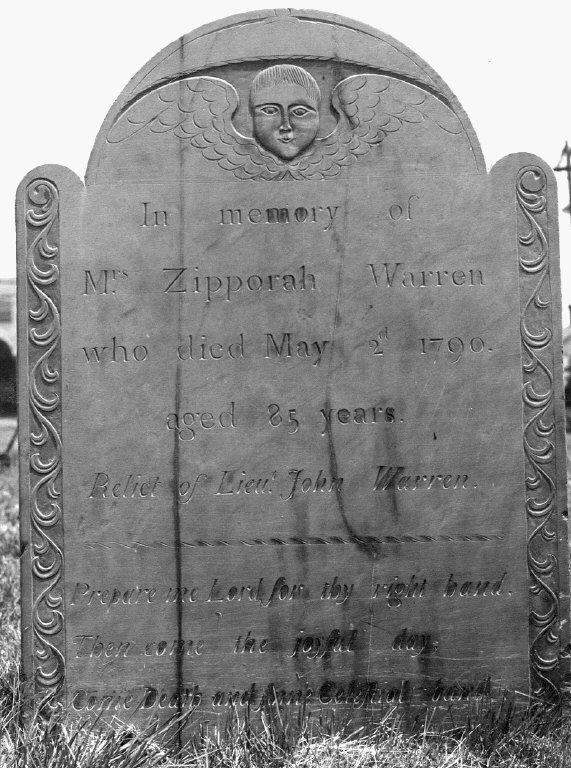 In memory of
Mrs Zipporah Warren
who died May 2d 1790.
aged 85 years.
Relict of Lieut John Warren.
Prepare me Lord for thy right hand,
Then come the joyful day,
Come Death and some Celestial band,